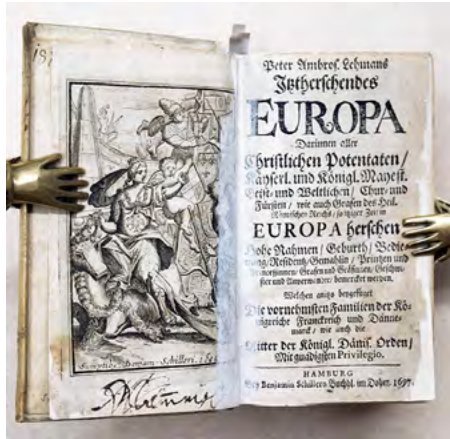 Peter Ambros. Lehmans
Jtztherschendes
EUROPA
Darinnen aller
Christlichen Potentaten/
Kayserl. und Königl. Mayest.
Geist- und Weltlichen/ Chur- und
Fürsten/ wie auch Grafen des Heil.
Römischen Reichs/ so itziger Zeit in
EUROPA herschen
Hohe Nahmen/ Geburth/ Bedie-
nung/ Residentz/ Gemahlin/ Printzen und
Printzeßinnen/ Grafen und Gräfinnen/ Geschwi-
ster und Anverwandte/ bemercket werden.
Welchen anitzo beygefüget
Die vornehmsten Familien der Kö-
nigreiche Franckreich und Dänne-
marck/ wie auch die
Ritter der Königl. Dänis. Orden/
Mit gnädigsten Privilegio.
HAMBURG
Bey Benjamin Schillern Buchhl. im Dohm. 1697.